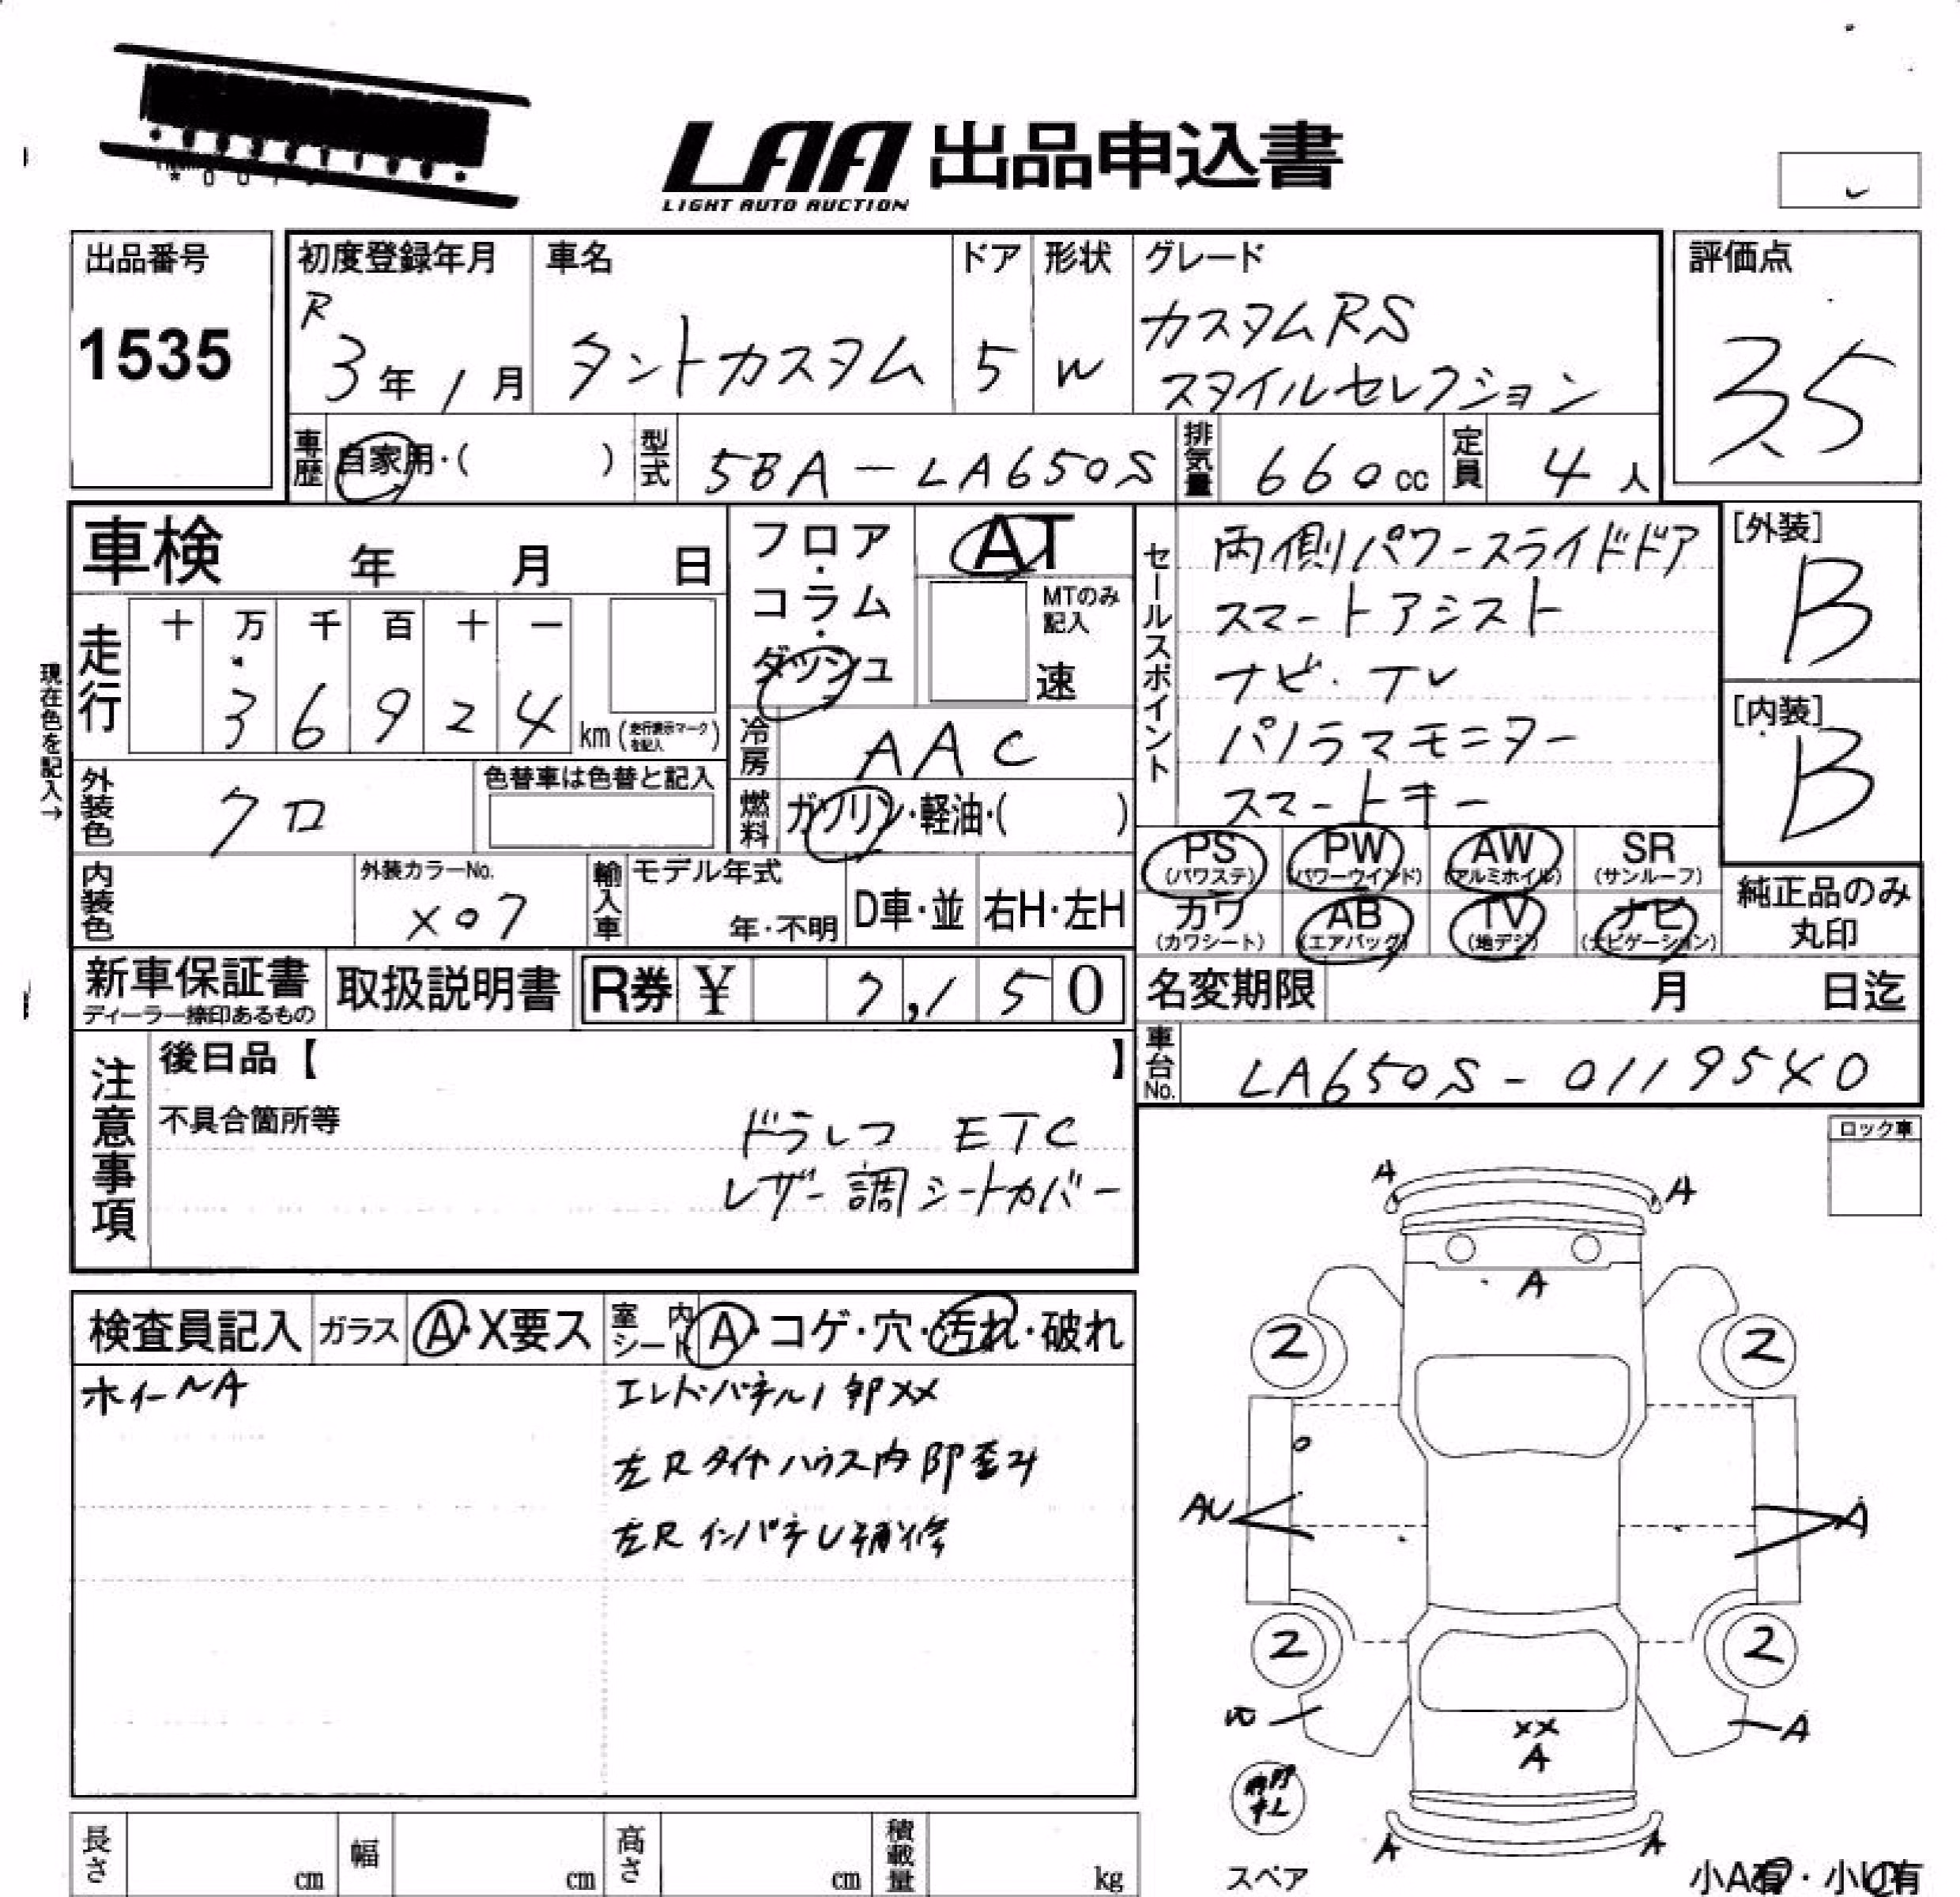 LAA 出品申込書
LIGHT AUTO AUCTION
出品番号
1535
初度登録年月
R
3年1月
車名
タントカスタム
ドア
5
形状
W
グレード
カスタムRS
スタイルセレクション
評価点
3.5
車歴
自家用・( )
型式
5BA-LA650S
排気量
660cc
定員
4人
車検 年 月 日
フロア・コラム・ダッシュ
AT
MTのみ記入
速
走行
十 万 千 百 十 一
3 6 9 2 4 km(走行表示マークを記入)
現在色を記入→
冷房
AAC
外装色
クロ
色替車は色替と記入
燃料
ガソリン・軽油・( )
内装色
外装カラーNo.
X07
輸入車
モデル年式
年・不明
D車・並
右H・左H
セールスポイント
両側パワースライドドア
スマートアシスト
ナビ・TV
パノラマモニター
スマートキー
[外装]
B
[内装]
B
PS (パワステ)
PW (パワーウインド)
AW (アルミホイル)
SR (サンルーフ)
カワ (カワシート)
AB (エアバッグ)
TV (地デジ)
ナビ (ナビゲーション)
純正品のみ丸印
新車保証書
ディーラー捺印あるもの
取扱説明書
R券 ¥ 7,150
名変期限 月 日迄
車台No.
LA650S-0119540
注意事項
後日品【 】
不具合箇所等
ドラレコ ETC
レザー調シートカバー
ロック車
検査員記入
ガラス
A・X要ス
室内シート
A・コゲ・穴・汚れ・破れ
ホイールA
エンドパネル1部XX
左Rタイヤハウス内部歪み
左Rインパネ U補修
A
A
A
2
2
AU
A
2
2
A
XX
A
A
A
スペア
小A有・小U有
長さ cm
幅 cm
高さ cm
積載量 kg